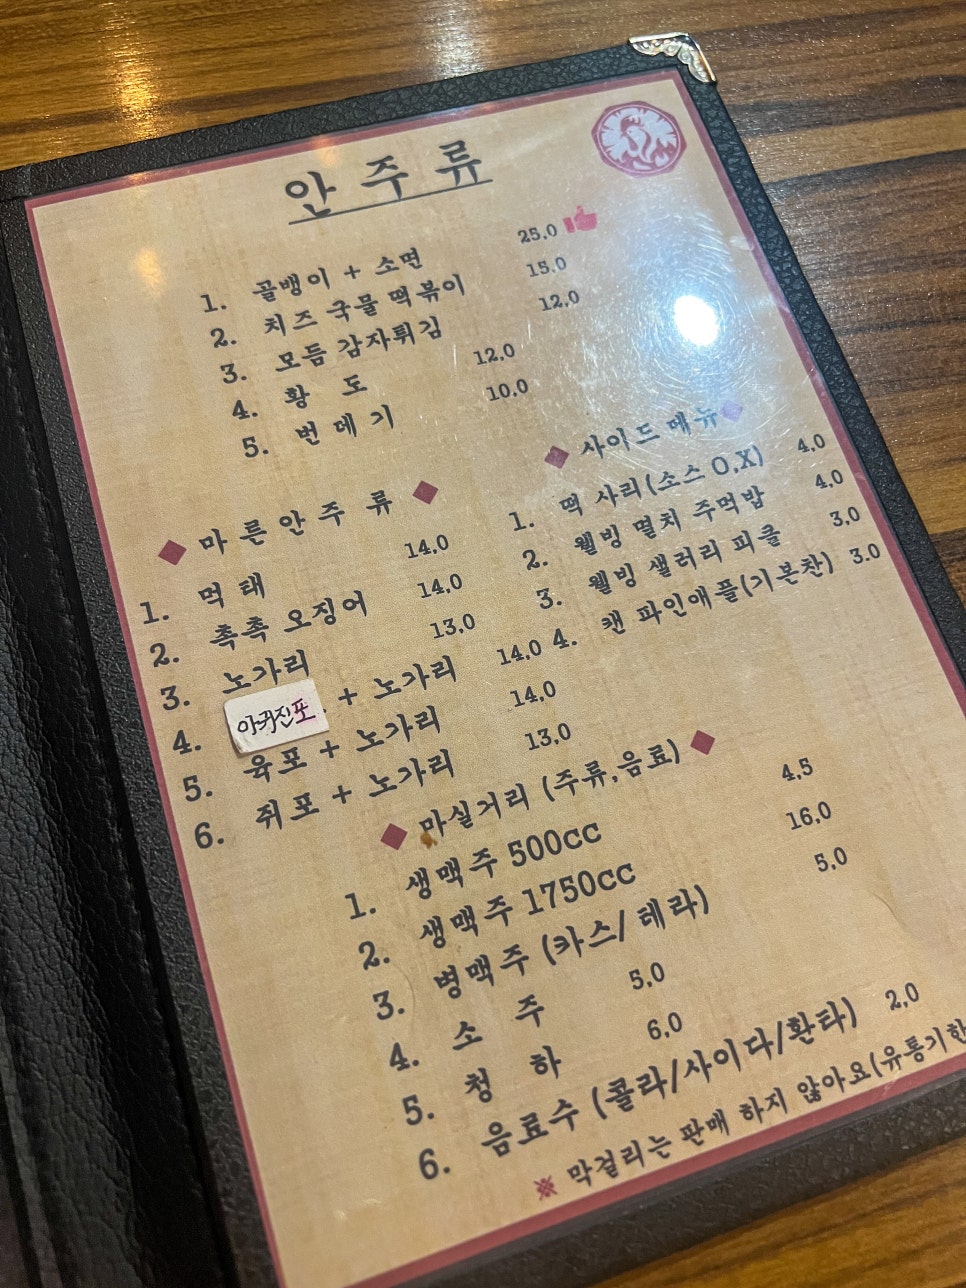 안 주 류
1. 골뱅이 + 소면 25.0
2. 치즈 국물 떡볶이 15.0
3. 모듬 감자튀김 12.0
4. 황 도 12.0
5. 번 데 기 10.0
◆ 마 른 안 주 류 ◆
1. 먹 태 14.0
2. 촉촉 오징어 14.0
3. 노가리 13.0
4. 아귀진포 + 노가리 14.0
5. 육포 + 노가리 14.0
6. 쥐포 + 노가리 13.0
◆ 사이드 메뉴 ◆
1. 떡 사리(소스 O,X) 4.0
2. 웰빙 멸치 주먹밥 4.0
3. 웰빙 샐러리 피클 3.0
4. 캔 파인애플(기본찬) 3.0
◆ 마실거리 (주류,음료) ◆
1. 생맥주 500cc 4.5
2. 생맥주 1750cc 16.0
3. 병맥주 (카스/ 테라) 5.0
4. 소 주 5.0
5. 청 하 6.0
6. 음료수 (콜라/사이다/환타) 2.0
※ 막걸리는 판매 하지 않아요(유통기한